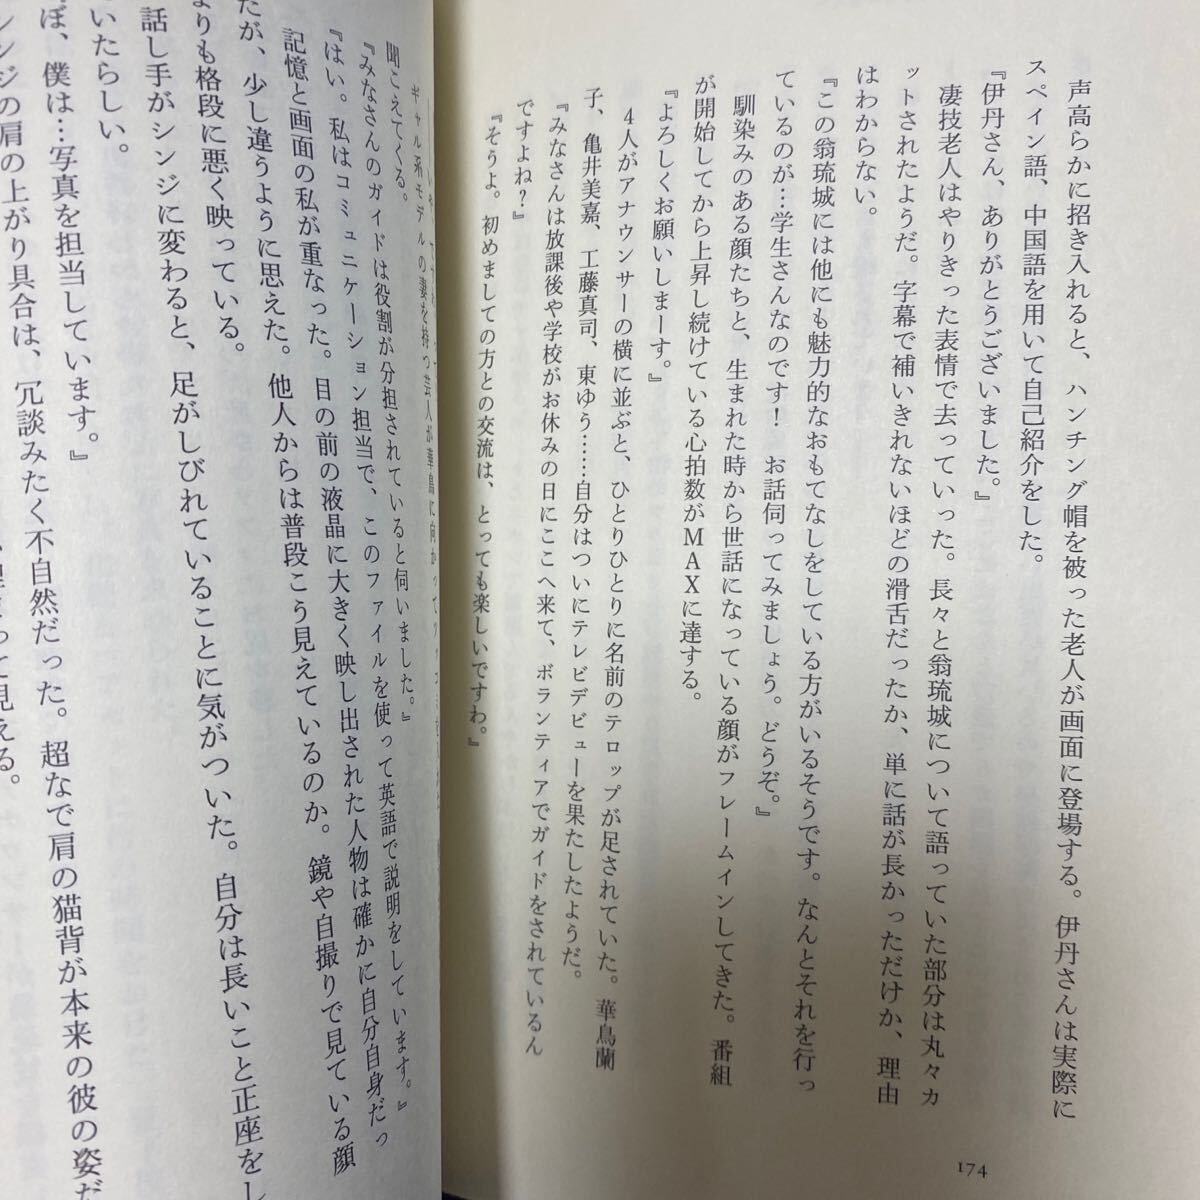 声高らかに招き入れると、ハンチング帽を被った老人が画面に登場する。伊丹さんは実際に
スペイン語、中国語を用いて自己紹介をした。
『伊丹さん、ありがとうございました。』
凄技老人はやりきった表情で去っていった。長々と翁琉城について語っていた部分は丸々カ
ットされたようだ。字幕で補いきれないほどの滑舌だったか、単に話が長かっただけか、理由
はわからない。
『この翁琉城には他にも魅力的なおもてなしをしている方がいるそうです。なんとそれを行っ
ているのが…学生さんなのです！　お話伺ってみましょう。どうぞ。』
馴染みのある顔たちと、生まれた時から世話になっている顔がフレームインしてきた。番組
が開始してから上昇し続けている心拍数がＭＡＸに達する。
『よろしくお願いしまーす。』
４人がアナウンサーの横に並ぶと、ひとりひとりに名前のテロップが足されていた。華鳥蘭
子、亀井美嘉、工藤真司、東ゆう……自分はついにテレビデビューを果たしたようだ。
『みなさんは放課後や学校がお休みの日にここへ来て、ボランティアでガイドをされているん
ですよね？』
『そうよ。初めましての方との交流は、とっても楽しいですわ。』
174
ギャル系モデルの妻を持つ芸人が華鳥に向かってツッコミを
聞こえてくる。
『みなさんのガイドは役割が分担されていると伺いました。』
『はい。私はコミュニケーション担当で、このファイルを使って英語で説明をしています。』
記憶と画面の私が重なった。目の前の液晶に大きく映し出された人物は確かに自分自身だっ
たが、少し違うように思えた。他人からは普段こう見えているのか。鏡や自撮りで見ている顔
よりも格段に悪く映っている。
話し手がシンジに変わると、足がしびれていることに気がついた。自分は長いこと正座をし
いたらしい。
ぼ、僕は…写真を担当しています。』
ンジの肩の上がり具合は、冗談みたく不自然だった。超なで肩の猫背が本来の彼の姿だ
って見える。